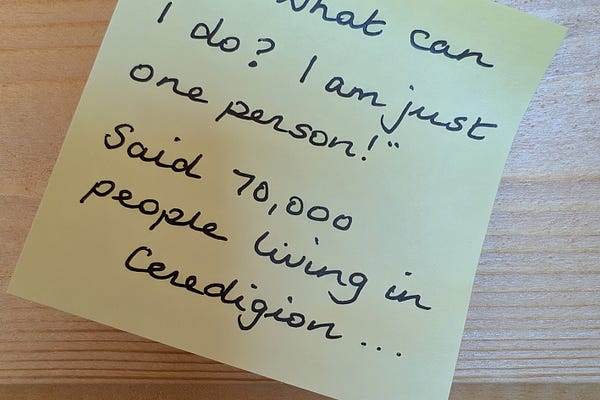 "What can
I do? I am just
one person!"
Said 70,000
people living in
Ceredigion...